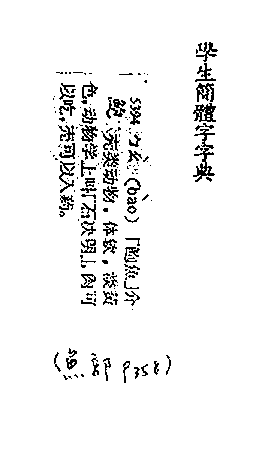 學生簡體字字典
5394 ㄅㄠˋ (bào) 「鲍鱼」介
鲍 壳类动物。体软，淡黄
色。动物学上叫「石决明」。肉可
以吃，壳可以入药。
(魚部 P358)